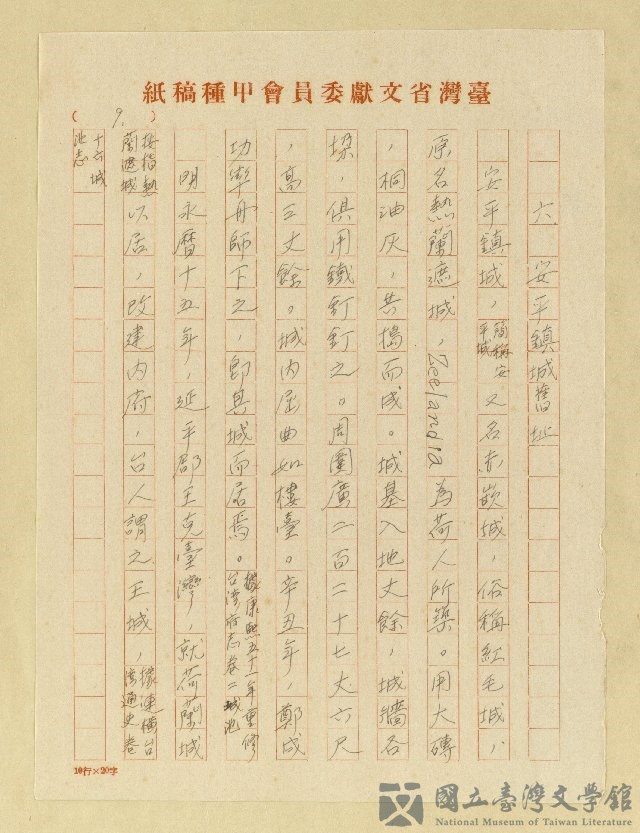 臺灣省文獻委員會甲種稿紙
( 9. )
六 安平鎮城舊址
安平鎮城，簡稱安平城又名赤嵌城，俗稱紅毛城，
原名熱蘭遮城，Zeelandia為荷人所築。用大磚
，桐油灰，共搗而成。城基入地丈餘，城牆各
垛，俱用鐵釘釘之。周圍廣二百二十七丈六尺
，高三丈餘。城內屈曲如樓臺。辛丑年，鄭成
功率舟師下之，即其城而居焉。據康熙五十一年重修台灣府志卷二城池
明永曆十五年，延平郡王克臺灣，就荷蘭城
以居，改建內府，台人謂之王城，據連橫台灣通史卷
十六城池志
按指熱蘭遮城
10行×20字
國立臺灣文學館
National Museum of Taiwan Literature